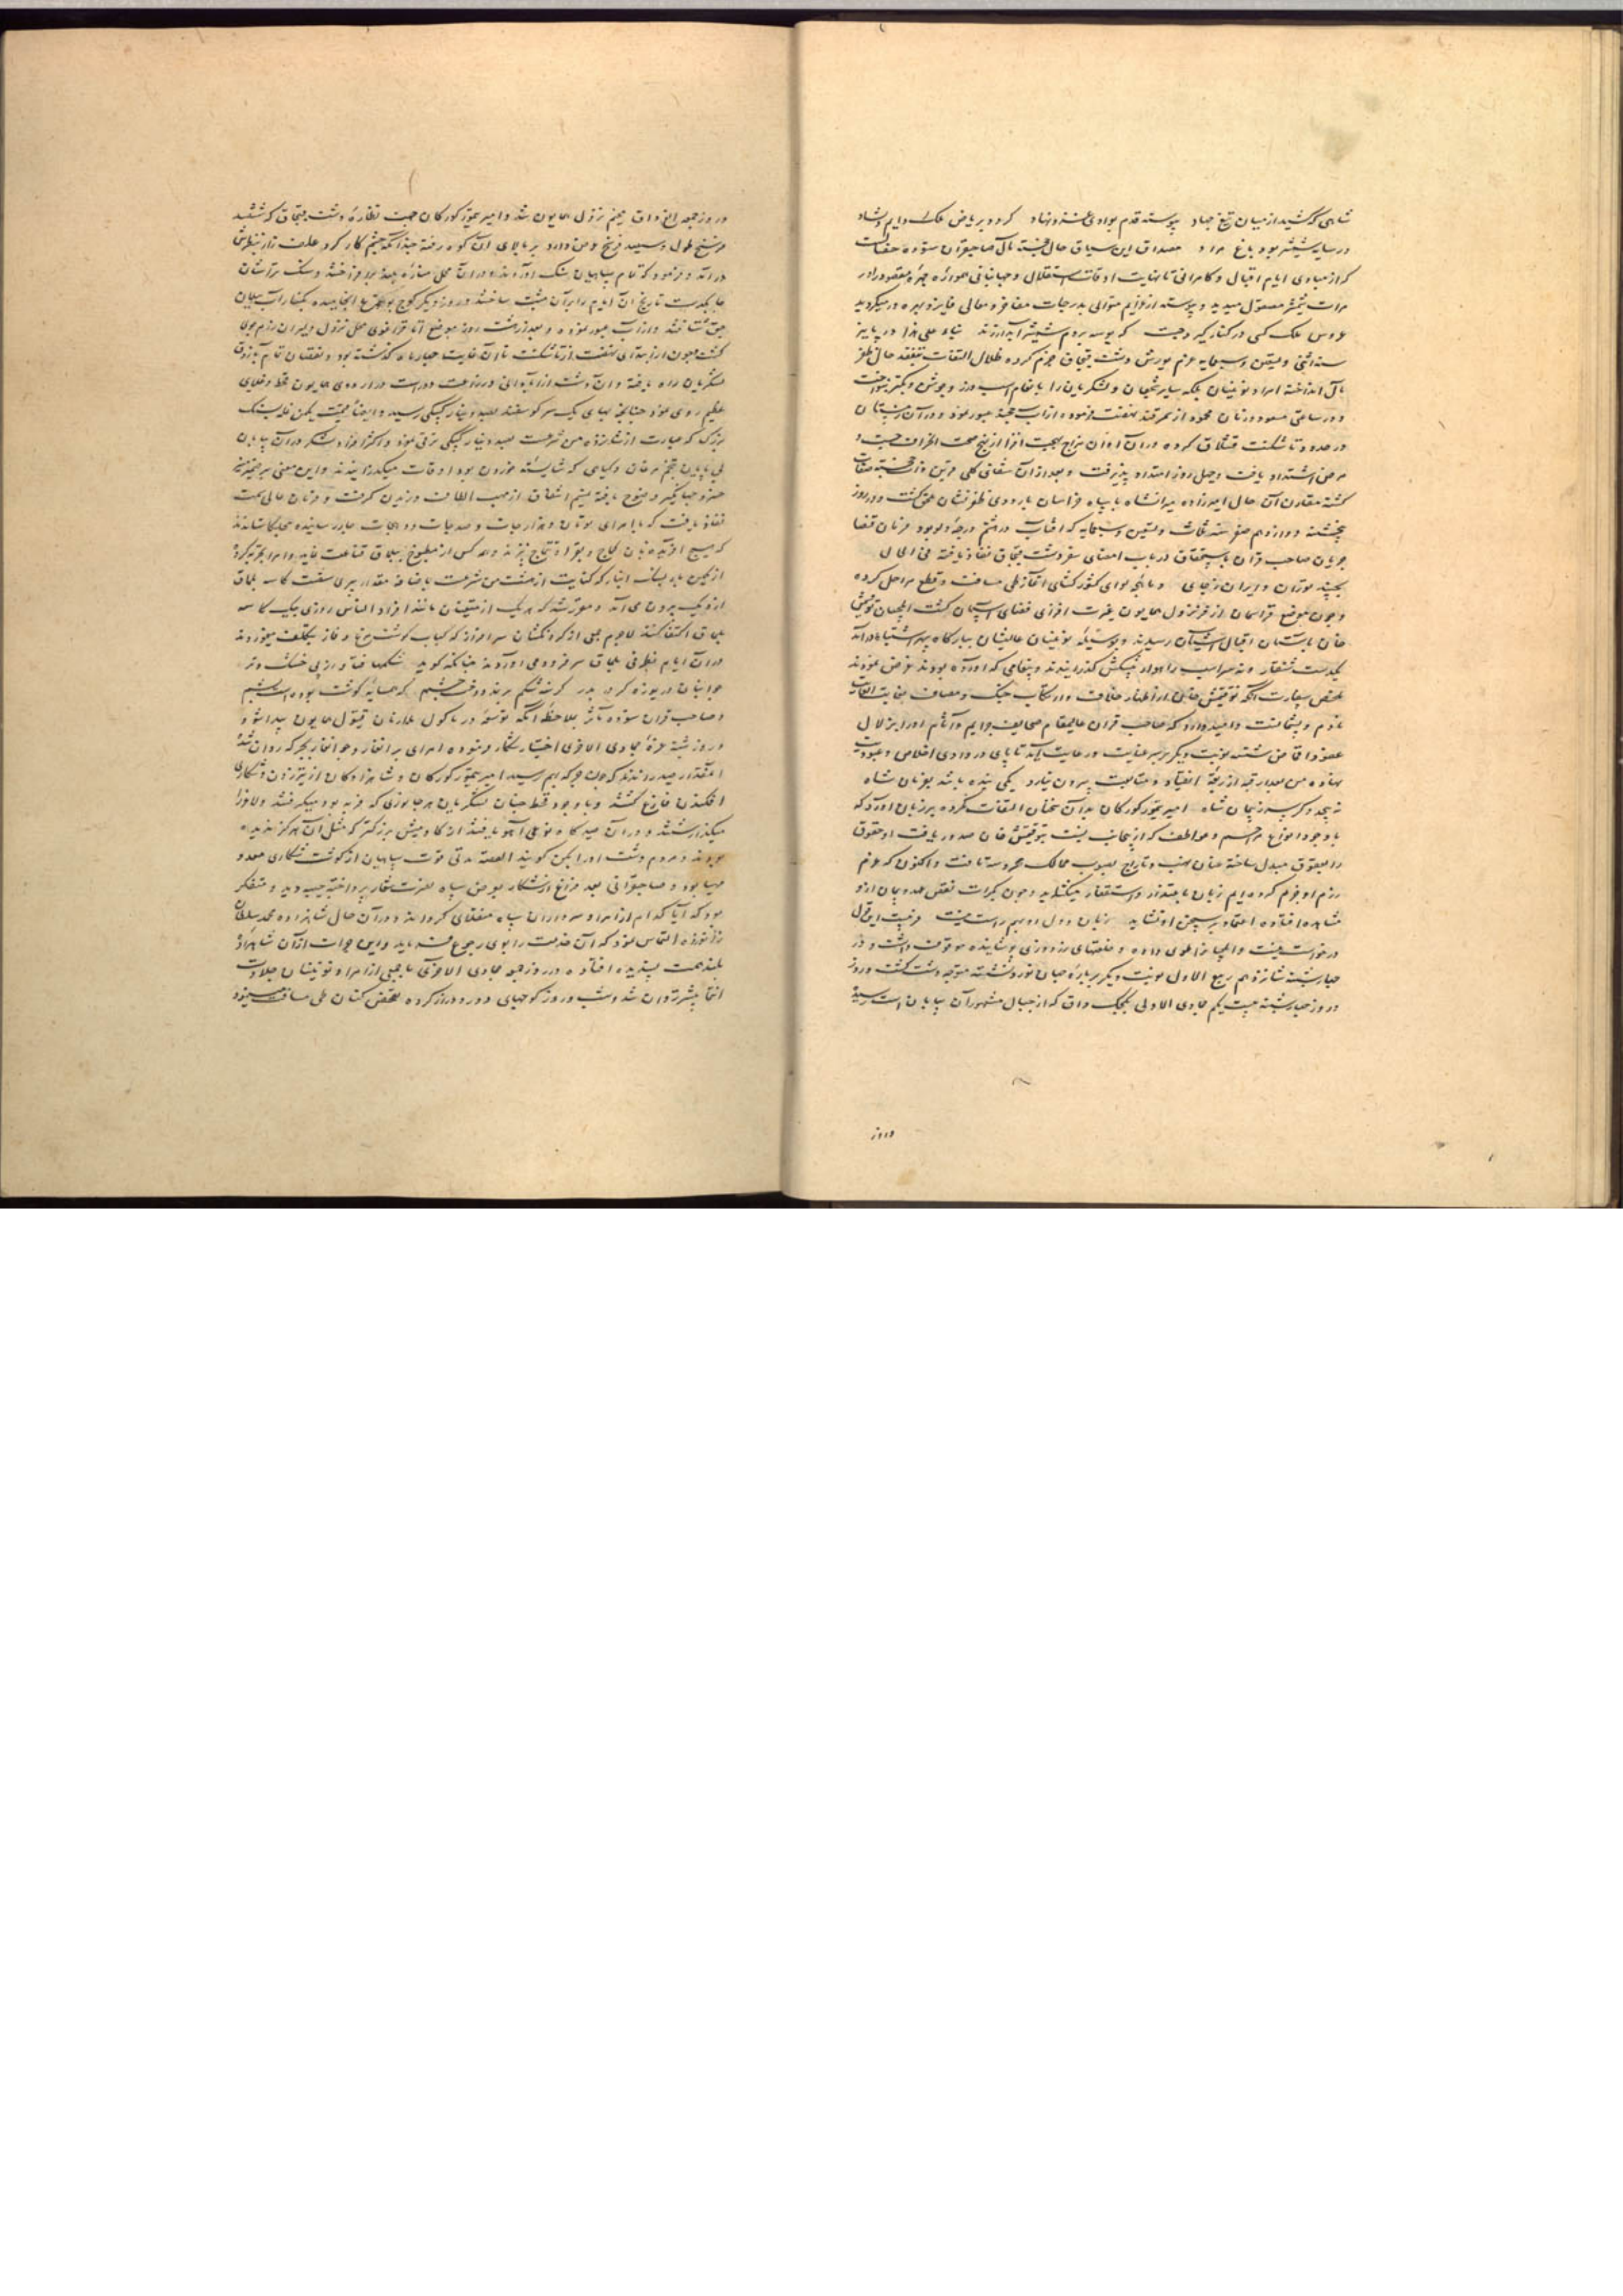 شاهی که کشید از میان تیغ جهاد پیوسته قدم بوادی فتنه نهاد کردد بریاض ملک دایم دلشاد
در سایه شمشیر بود باغ مراد مصداق این سیاق حال خجسته مآل صاحبقران ستوده صفات است
که از مبادی ایام اقبال و کامرانی تا نهایت اوقات استقلال و جهانبانی همواره چهره مقصود را در
مرات شمشیر مصقول میدید و پیوسته از لوازم متوالی بدرجات مفاخر و معالی فایز و بهره ور میکردید
عروس ملک کسی در کنار گیرد چست که بوسه بر دم شمشیر آبدار زند بناء علی هذا در پاییز
سنه اثنی و تسعین و سبعمایه عزم یورش دشت قبچاق جزم کرده ظلال التفات بتفقد حال ظفر
مآل انداخته امرا و نوئینان بلکه سایر شجعان و لشکریان را بانعام اسب و زر و جوشن و بکتر بنواخت
و در ساعتی مسعود و زمان محمود از سمرقند نهضت فرموده از آب خجند عبور نمود و در آن زمستان
در حدود تاشکنت قشلاق کرده در آن اوان مزاج بهجت افزا از نهج صحت انحراف جست و
مرض اشتداد یافت و چهل روز امتداد پذیرفت و بعد از آن شفای کلی قرین ذات خجسته صفات
کشته مقارن آن حال امیرزاده میرانشاه با سپاه خراسان باردوی ظفرنشان ملحق کشت و در روز
پنجشنبه دوازدهم صفر سنه ثلاث و تسعین و سبعمایه که آفتاب در هشتم درجه دلو بود فرمان قضا
جریان صاحب قران باستحقاق در باب امضای سفر دشت قبچاق نفاذ یافته فی الحال
بجنبید توران و ایران ز جای و ماهچه لوای کشورکشای آغاز طی مسافت و قطع مراحل کرده
و چون موضع قراسمان از فر نزول همایون غیرت افزای فضای آسمان کشت ایلچیان توقتمش
خان بآستان اقبال آشیان رسیدند و بوسیله نوئینان عالیشان ببارگاه سپهر اشتباه درآمده
یکدست شنقار و نه سر اسب راهوار پیشکش گذرانیدند و پیغامی که آورده بودند عرض نمودند
ملخص سفارت آنکه توقتمش خان از اظهار خلاف و ارتکاب جنک و مصاف بغایت الغایت
نادم و پشیمانست و امید دارد که صاحب قران عالیمقام صحایف جرایم و آثام او را بزلال
عفو و اغماض شسته نوبت دیگر بر سر عنایت و رعایت آید تا پای در وادی اخلاص و عبودیت
نهاده من بعد رقبه از ربقه انقیاد و متابعت بیرون نیارد یکی بنده باشد بفرمان شاه
نه پیچد دگر سر ز پیمان شاه امیر تیمور کورکان بدان سخنان التفات نکرده بر زبان آورد که
با وجود انواع مراحم و عواطف که از ینجانب نسبت بتوقتمش خان صدور یافت او حقوق
را بعقوق مبدل ساخته عنان نهب و تاراج بصوب ممالک محروسه تافت و اکنون که عزم
رزم او جزم کرده ایم زبان باعتذار و استغفار میکشاید و چون بکرات نقض عهد و پیمان از او
مشاهده افتاده اعتماد بر سخن او نشاید زبان و دل او بهم راست نیست فریب این قول
در خور است نیست و ایلچیانرا طوی داده و خلعتهای زردوزی پوشانیده موقوف داشت و در
چهارشنبه شانزدهم ربیع الاول نوبت دیگر بر باره جهان نورد نشسته متوجه دشت کشت و روز
در روز چهارشنبه بیست یکم جمادی الاولی بکجک داق که از جبال مشهور آن بیابان است رسید
و روز
در روز جمعه الغ داق مخیم نزول همایون شد و امیر تیمور کورکان جهت نظاره دشت قبچاق که ششصد
فرسنخ طول و سیصد فرسخ عرض دارد بر بالای آن کوه رفته چندانکه چشم کار کرد علف زار بنظرش
درآمد و فرمود که تمام سپاهیان سنک آورده در آن محل مناره بلند برافروختند و سنک تراشان
چابکدست تاریخ آن ایام را بر آن مثبت ساختند و روز دیگر کوچ
جق شتافتند و از آب عبور نموده و بعد از هشت روز موضع آناقرقوی محل نزول دلیران رزم جوی
کشت و چون از ابتدای نهضت از تاشکنت تا آن غایت چهار ماه گذشته بود و نقصان تمام بآذوق
لشکریان راه یافته و آن دشت از آبادانی و زراعت دور است در اردوی همایون قحط و غلای
عظیم روی نمود چنانچه بهای یک سر کوسفند بصد دینار کپکی رسید و ایضا قیمت یکمن غله بسنک
بزرک که عبارت از شانزده من شرعست بصد دینار کپکی ترقی نمود و اکثر افراد لشکر در آن بیابان
بی پایان بتخم مرغان و گیاهی که شایسته خوردن بود اوقات میکذرانیدند و این معنی بر ضمیر منیر
خسرو جهانکیر وضوح یافته نسیم اشفاق از مهب الطاف وزیدن کرفت و فرمان عالی سمت
نفاذ یافت که با امرای تومان و هزارجات و صدجات و دهجات چار رسانیده مچلکا ستانند
که هیچ آفریده نان کماج و بغرا و تتماج نپزند و همه کس از مطبوخ بیلماق قناعت نماید و امرا تجربه کرده
از یکمن بار بسنک انبار که کنایت از هشت من شرعست باضافه مقداری سفت کاسه بلماق
از دیک بیرون می آمد و مقرر شد که هر یک از متعینان مانند افراد الناس روزی بیک کاسه
بلماق اکتفا کنند لاجرم جمعی از گردنکشان سرافراز که کباب گوشت مرغ و قاز بتکلف میخوردند
در آن ایام بظرفی بلماق سر فرود می آوردند چنانکه گوید شکمها فتاد از پی خشک و تر
جوانان دریوزه کرد بدر گرسنه شکم بر ندوخت چشم که همسایه گوشت بوده است پشم
و صاحب قران ستوده مآثر بملاحظه آنکه توسعه در ماکول ملازمان قیتول همایون پیدا شود
در روز شنبه غره جمادی الاخری اختیار شکار فرموده امرای برانغار و جوانغار بجرکه روان شده
آنقدار صید راندند که چون جرکه بهم رسید امیر تیمور کورکان و شاهزادکان از تیر زدن و شکاری
افکندن فارغ کشتند و با وجود قحط چنان لشکریان هر جانوری که فربه بود میکرفتند و لاغر را
میگذاشتند و در آن صیدگاه نوعی آهو یافتند از گاومیش بزرگتر که مثل آن هرگز ندیده
بودند و مردم دشت او را یکمن گویند القصه مدتی قوت سپاهیان از گوشت شکاری معد و
مهیا بود و صاحبقرانی بعد فراغ از شکار بعرض سپاه نصرت شعار پرداخته جیبه دید و متفکر
بود که آیا کدام از امرا و سرداران سپاه منقلای گرداند و در آن حال شاهزاده محمد سلطان
زانو زده التماس نمود که آن خدمت را بوی رجوع فرماید و این جرات از آن شاهزاده
بلند همت پسندیده افتاده در روز جمعه جمادی الاخری با جمعی از امرا و نوئینان جلادت
انتما پیشتر روان شد و شب و روز کوچهای دور و دراز کرده تفحص کنان طی مسافت مینمود